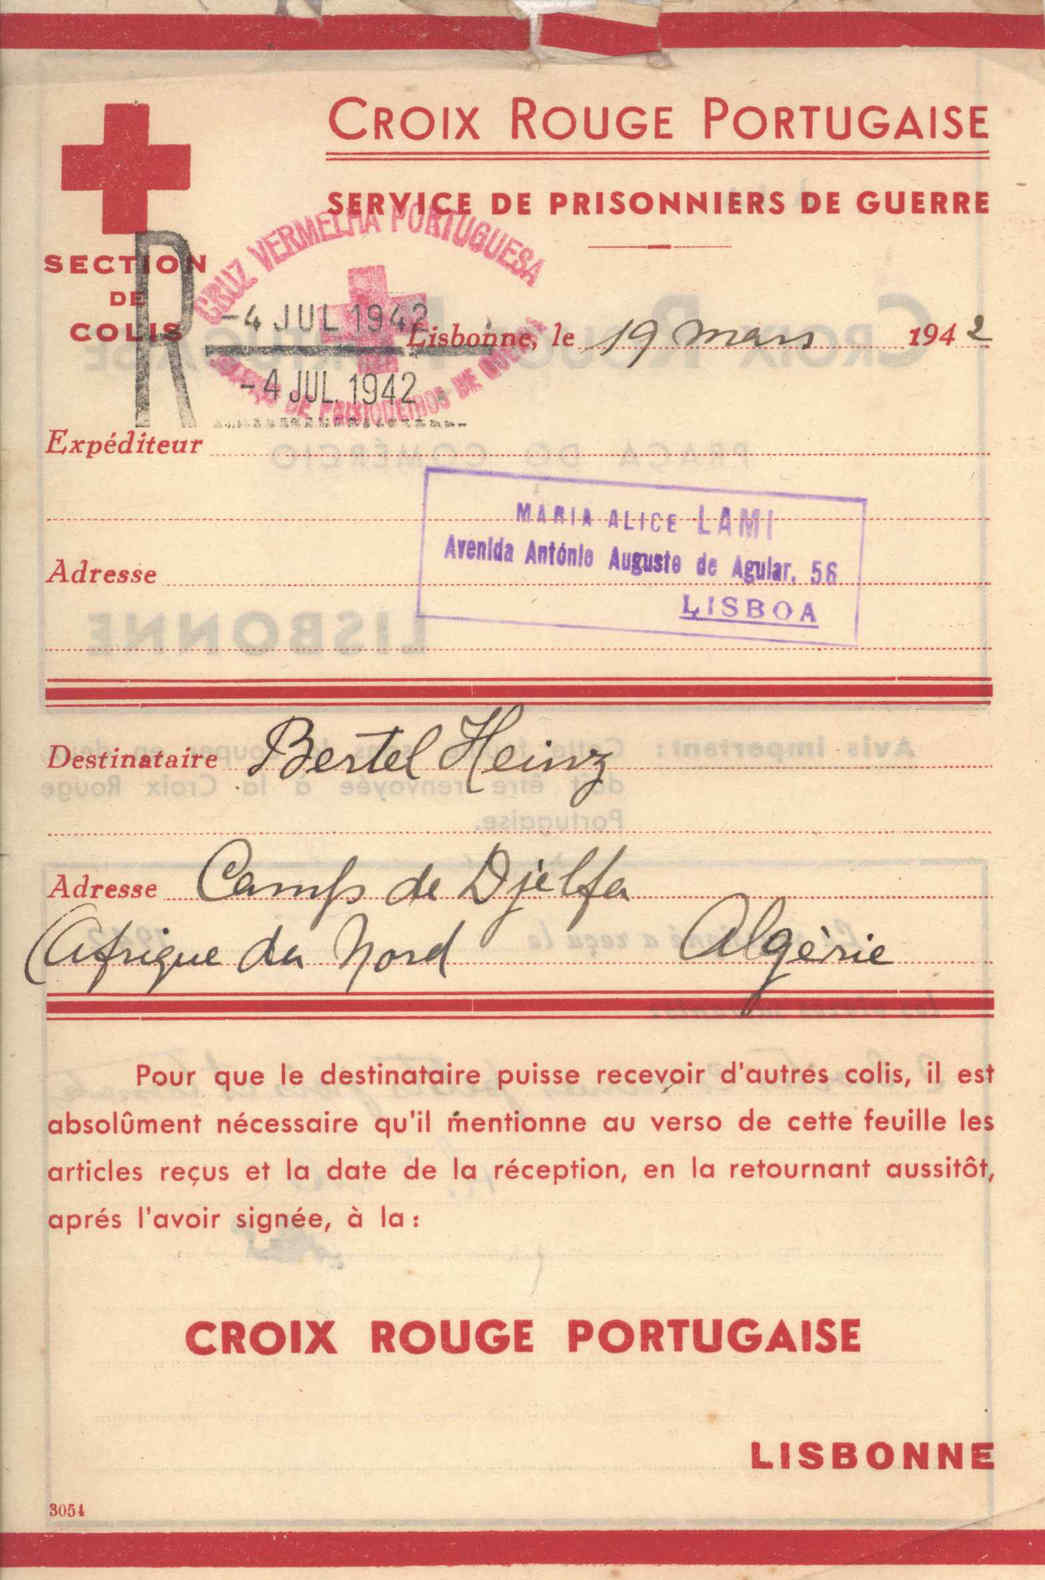 CROIX ROUGE PORTUGAISE
SERVICE DE PRISONNIERS DE GUERRE
SECTION
DE
COLIS
R
CRUZ VERMELHA PORTUGUESA
-4 JUL 1942
-4 JUL 1942
DE PRISIONEIROS DE
Lisbonne, le 19 mars 1942
Expéditeur
MARIA ALICE LAMI
Avenida António Augusto de Aguiar, 56
LISBOA
Adresse
Destinataire Bertel Heinz
Adresse Camps de Djelfa
(Afrique du Nord Algérie
Pour que le destinataire puisse recevoir d'autres colis, il est
absolûment nécessaire qu'il mentionne au verso de cette feuille les
articles reçus et la date de la réception, en la retournant aussitôt,
aprés l'avoir signée, à la :
CROIX ROUGE PORTUGAISE
LISBONNE
3054